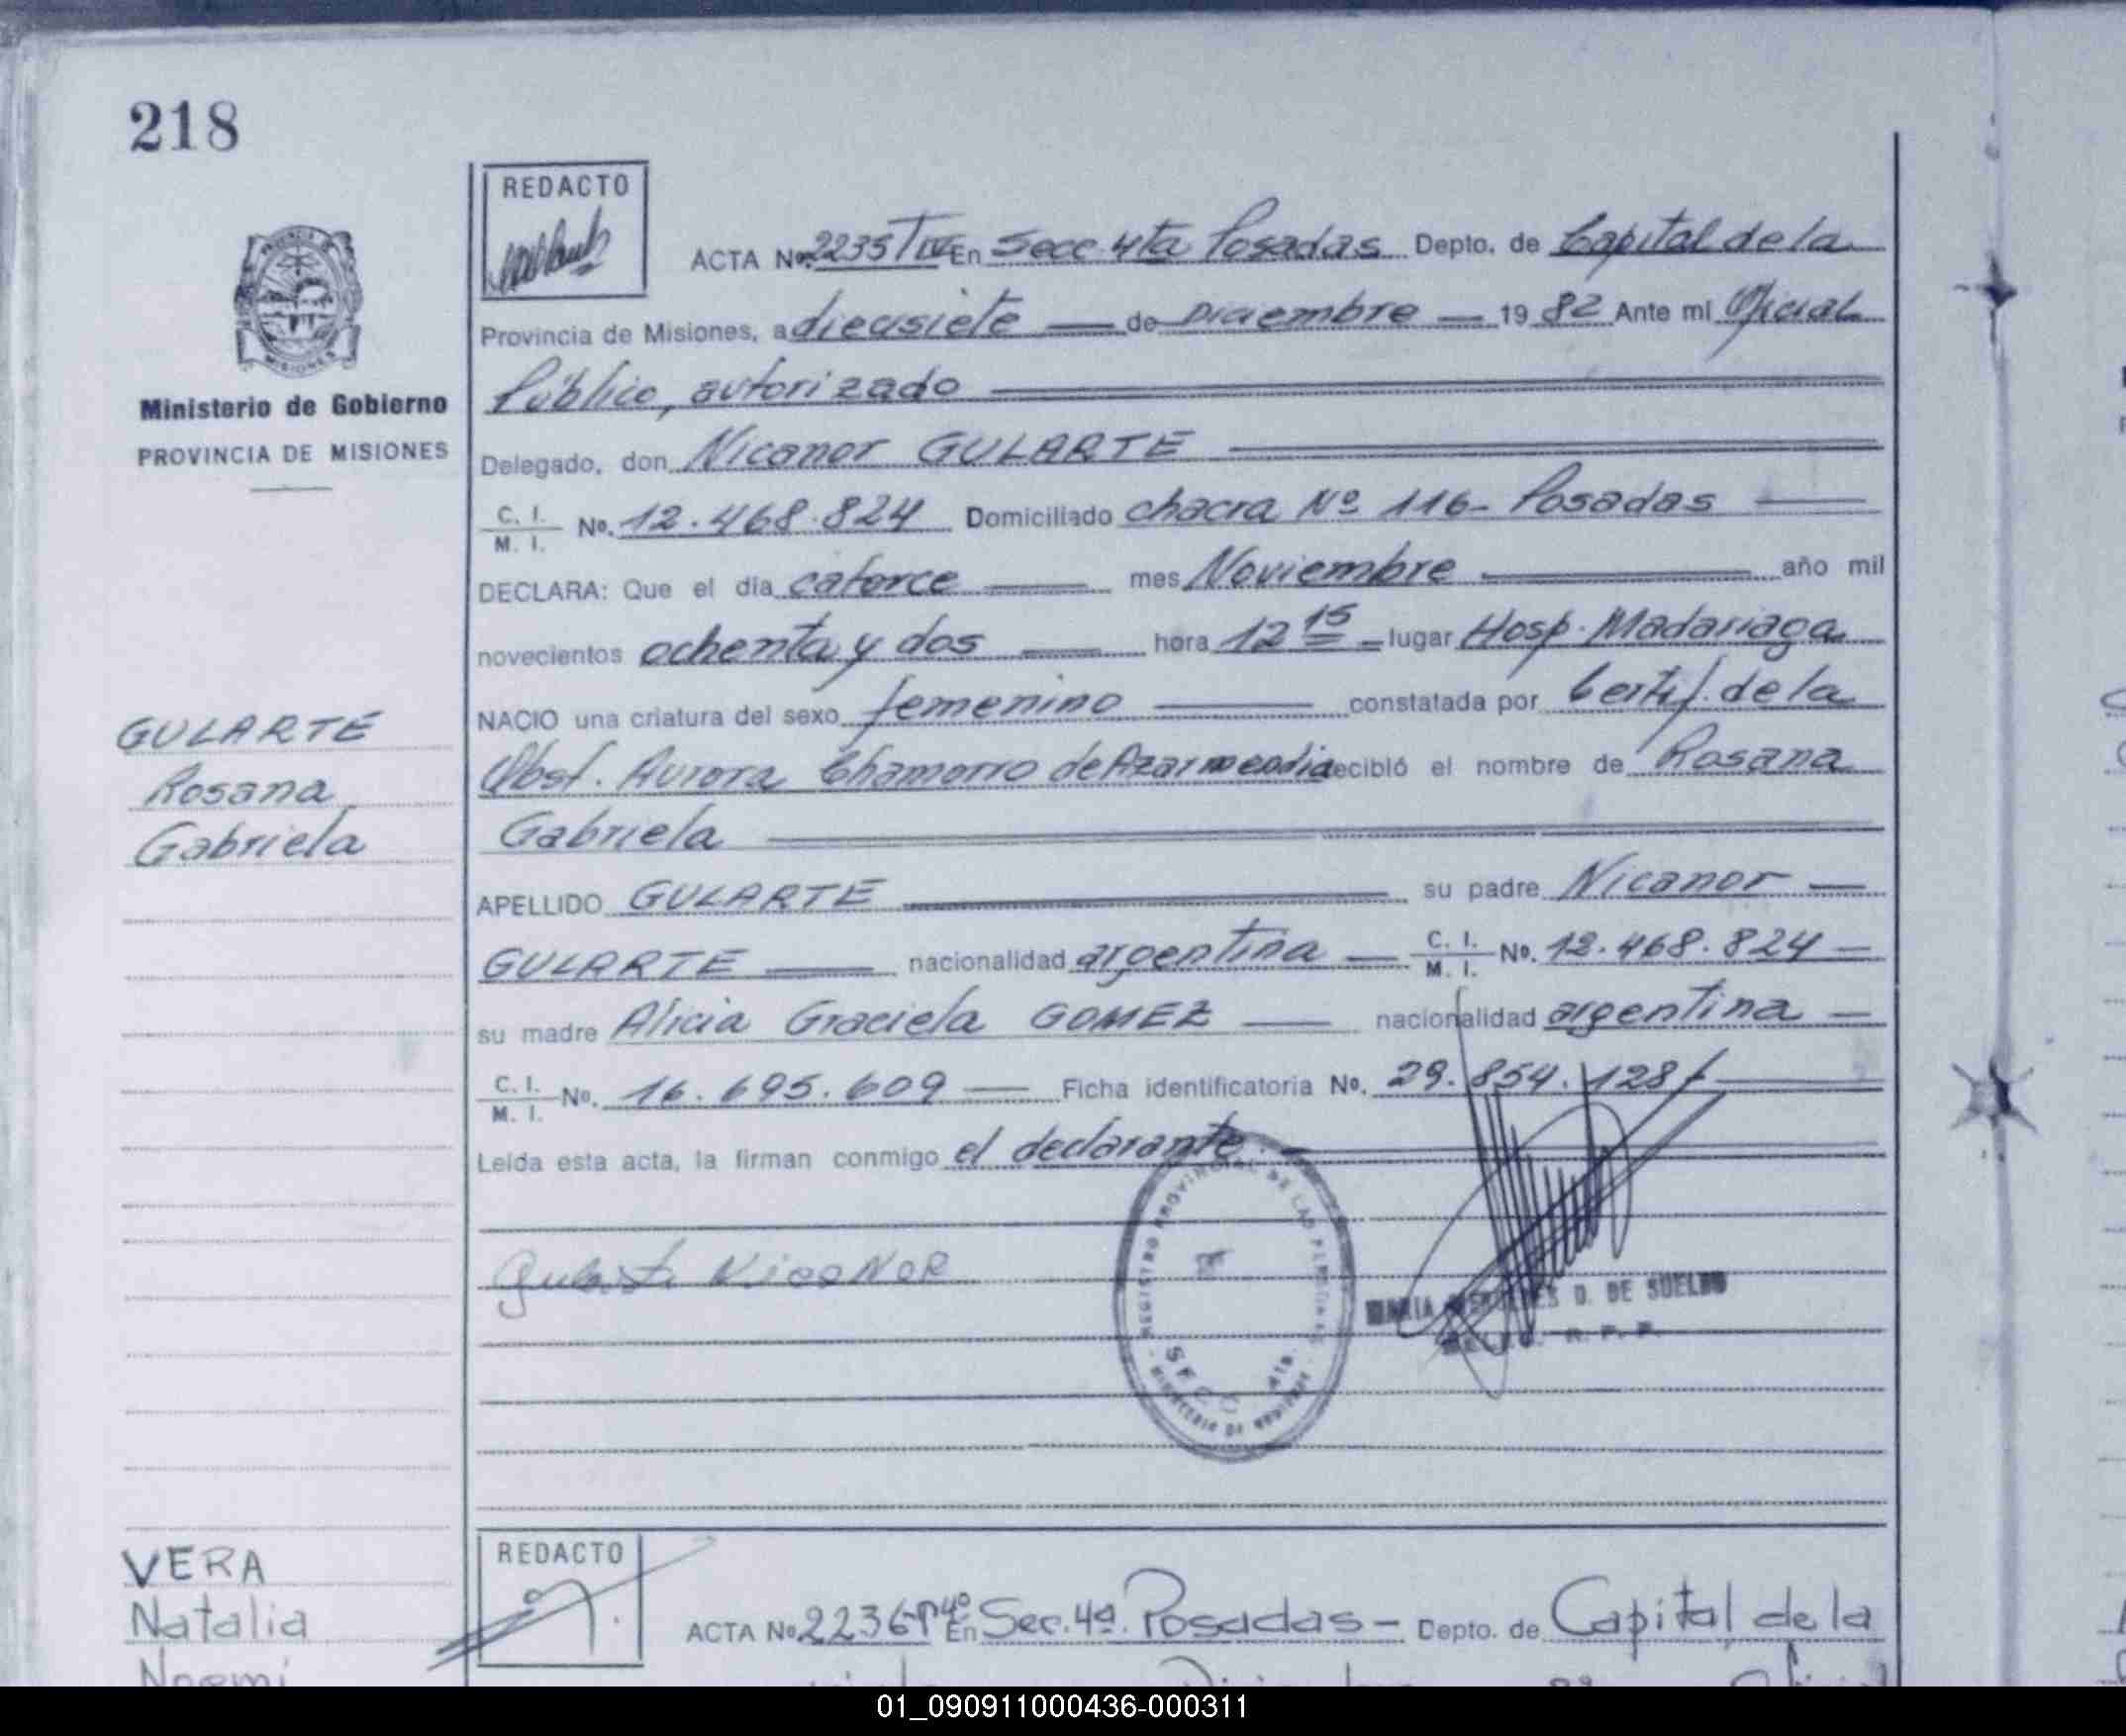 218
REDACTO
ACTA No. 2235 T IV En Secc. 4ta Posadas Depto. de Capital de la
Provincia de Misiones, a diecisiete de Diciembre 19 82 Ante mi Oficial
Público, autorizado
Ministerio de Gobierno
PROVINCIA DE MISIONES
Delegado, don Nicanor GULARTE
C. I. / M. I. No. 12.468.824 Domiciliado chacra Nº 116- Posadas
DECLARA: Que el día catorce mes Noviembre año mil
novecientos ochenta y dos hora 12 15 lugar Hosp. Madariaga
NACIO una criatura del sexo femenino constatada por Certif. de la
GULARTE
Rosana
Gabriela
Obst. Aurora Chamorro de Azarmendia recibló el nombre de Rosana
Gabriela
APELLIDO GULARTE su padre Nicanor
GULARTE nacionalidad argentina C. I. / M. I. No. 12.468.824
su madre Alicia Graciela GOMEZ nacionalidad argentina
C. I. / M. I. No. 16.695.609 Ficha identificatoria No. 29.854.128
Leída esta acta, la firman conmigo el declarante.
Gularte NicaNoR
MARIA D. DE SUELDO
R. P. P.
SECC 4ta.
VERA
Natalia
Noemí
REDACTO
ACTA No. 2236 Tº 4º En Sec. 4ª. Posadas - Depto. de Capital de la
01_090911000436-000311